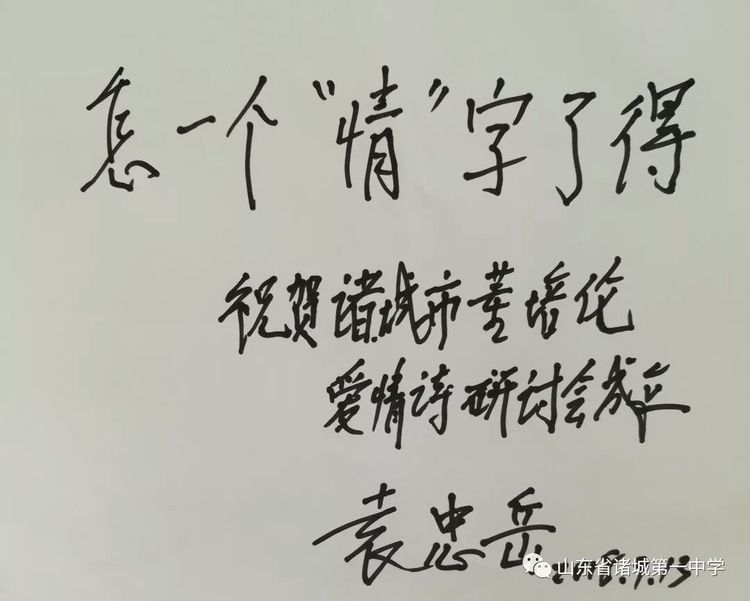 怎一个“情”字了得
祝贺诸城市董培伦
爱情诗研讨会成立
袁忠岳
山东省诸城第一中学